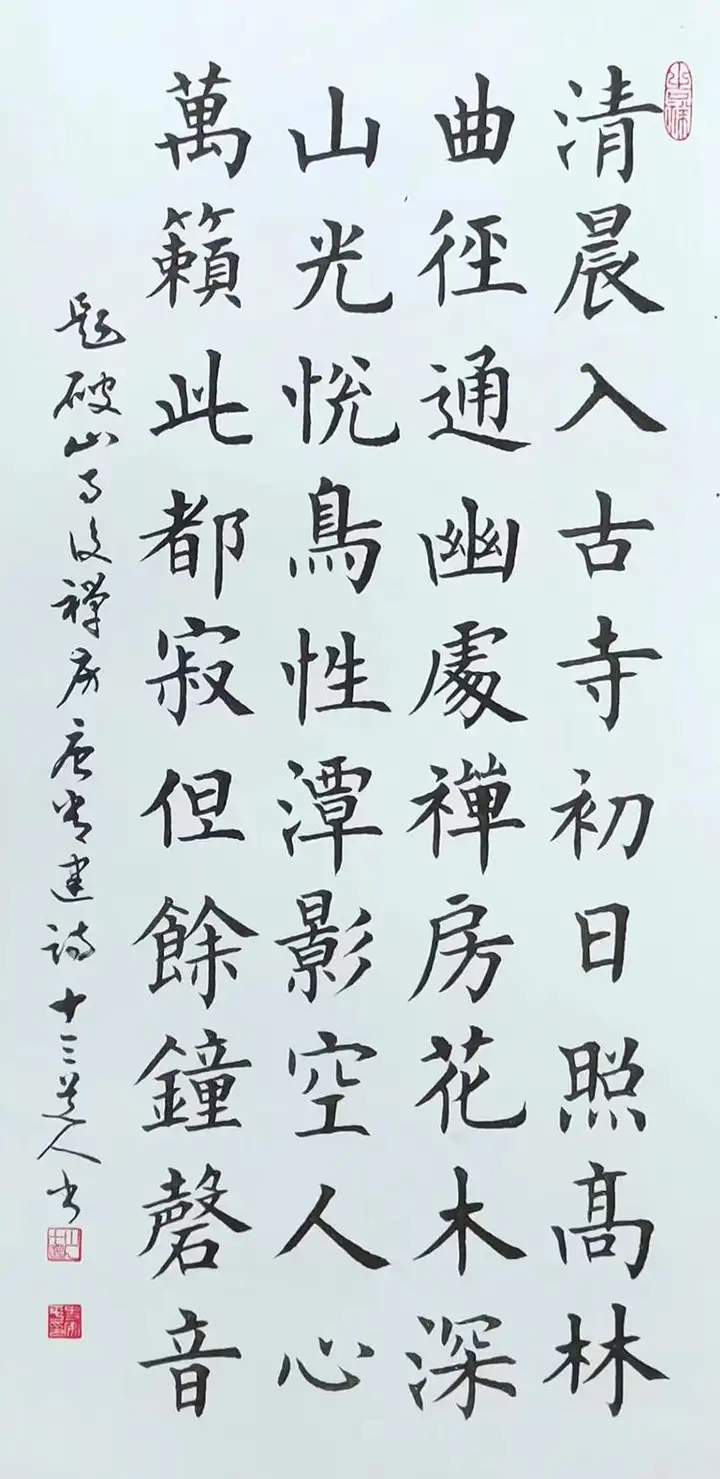 清晨入古寺初日照髙林
曲徑通幽處禪房花木深
山光悅鳥性潭影空人心
萬籟此都寂但餘鐘磬音
題破山寺後禪房唐常建詩十三道人書